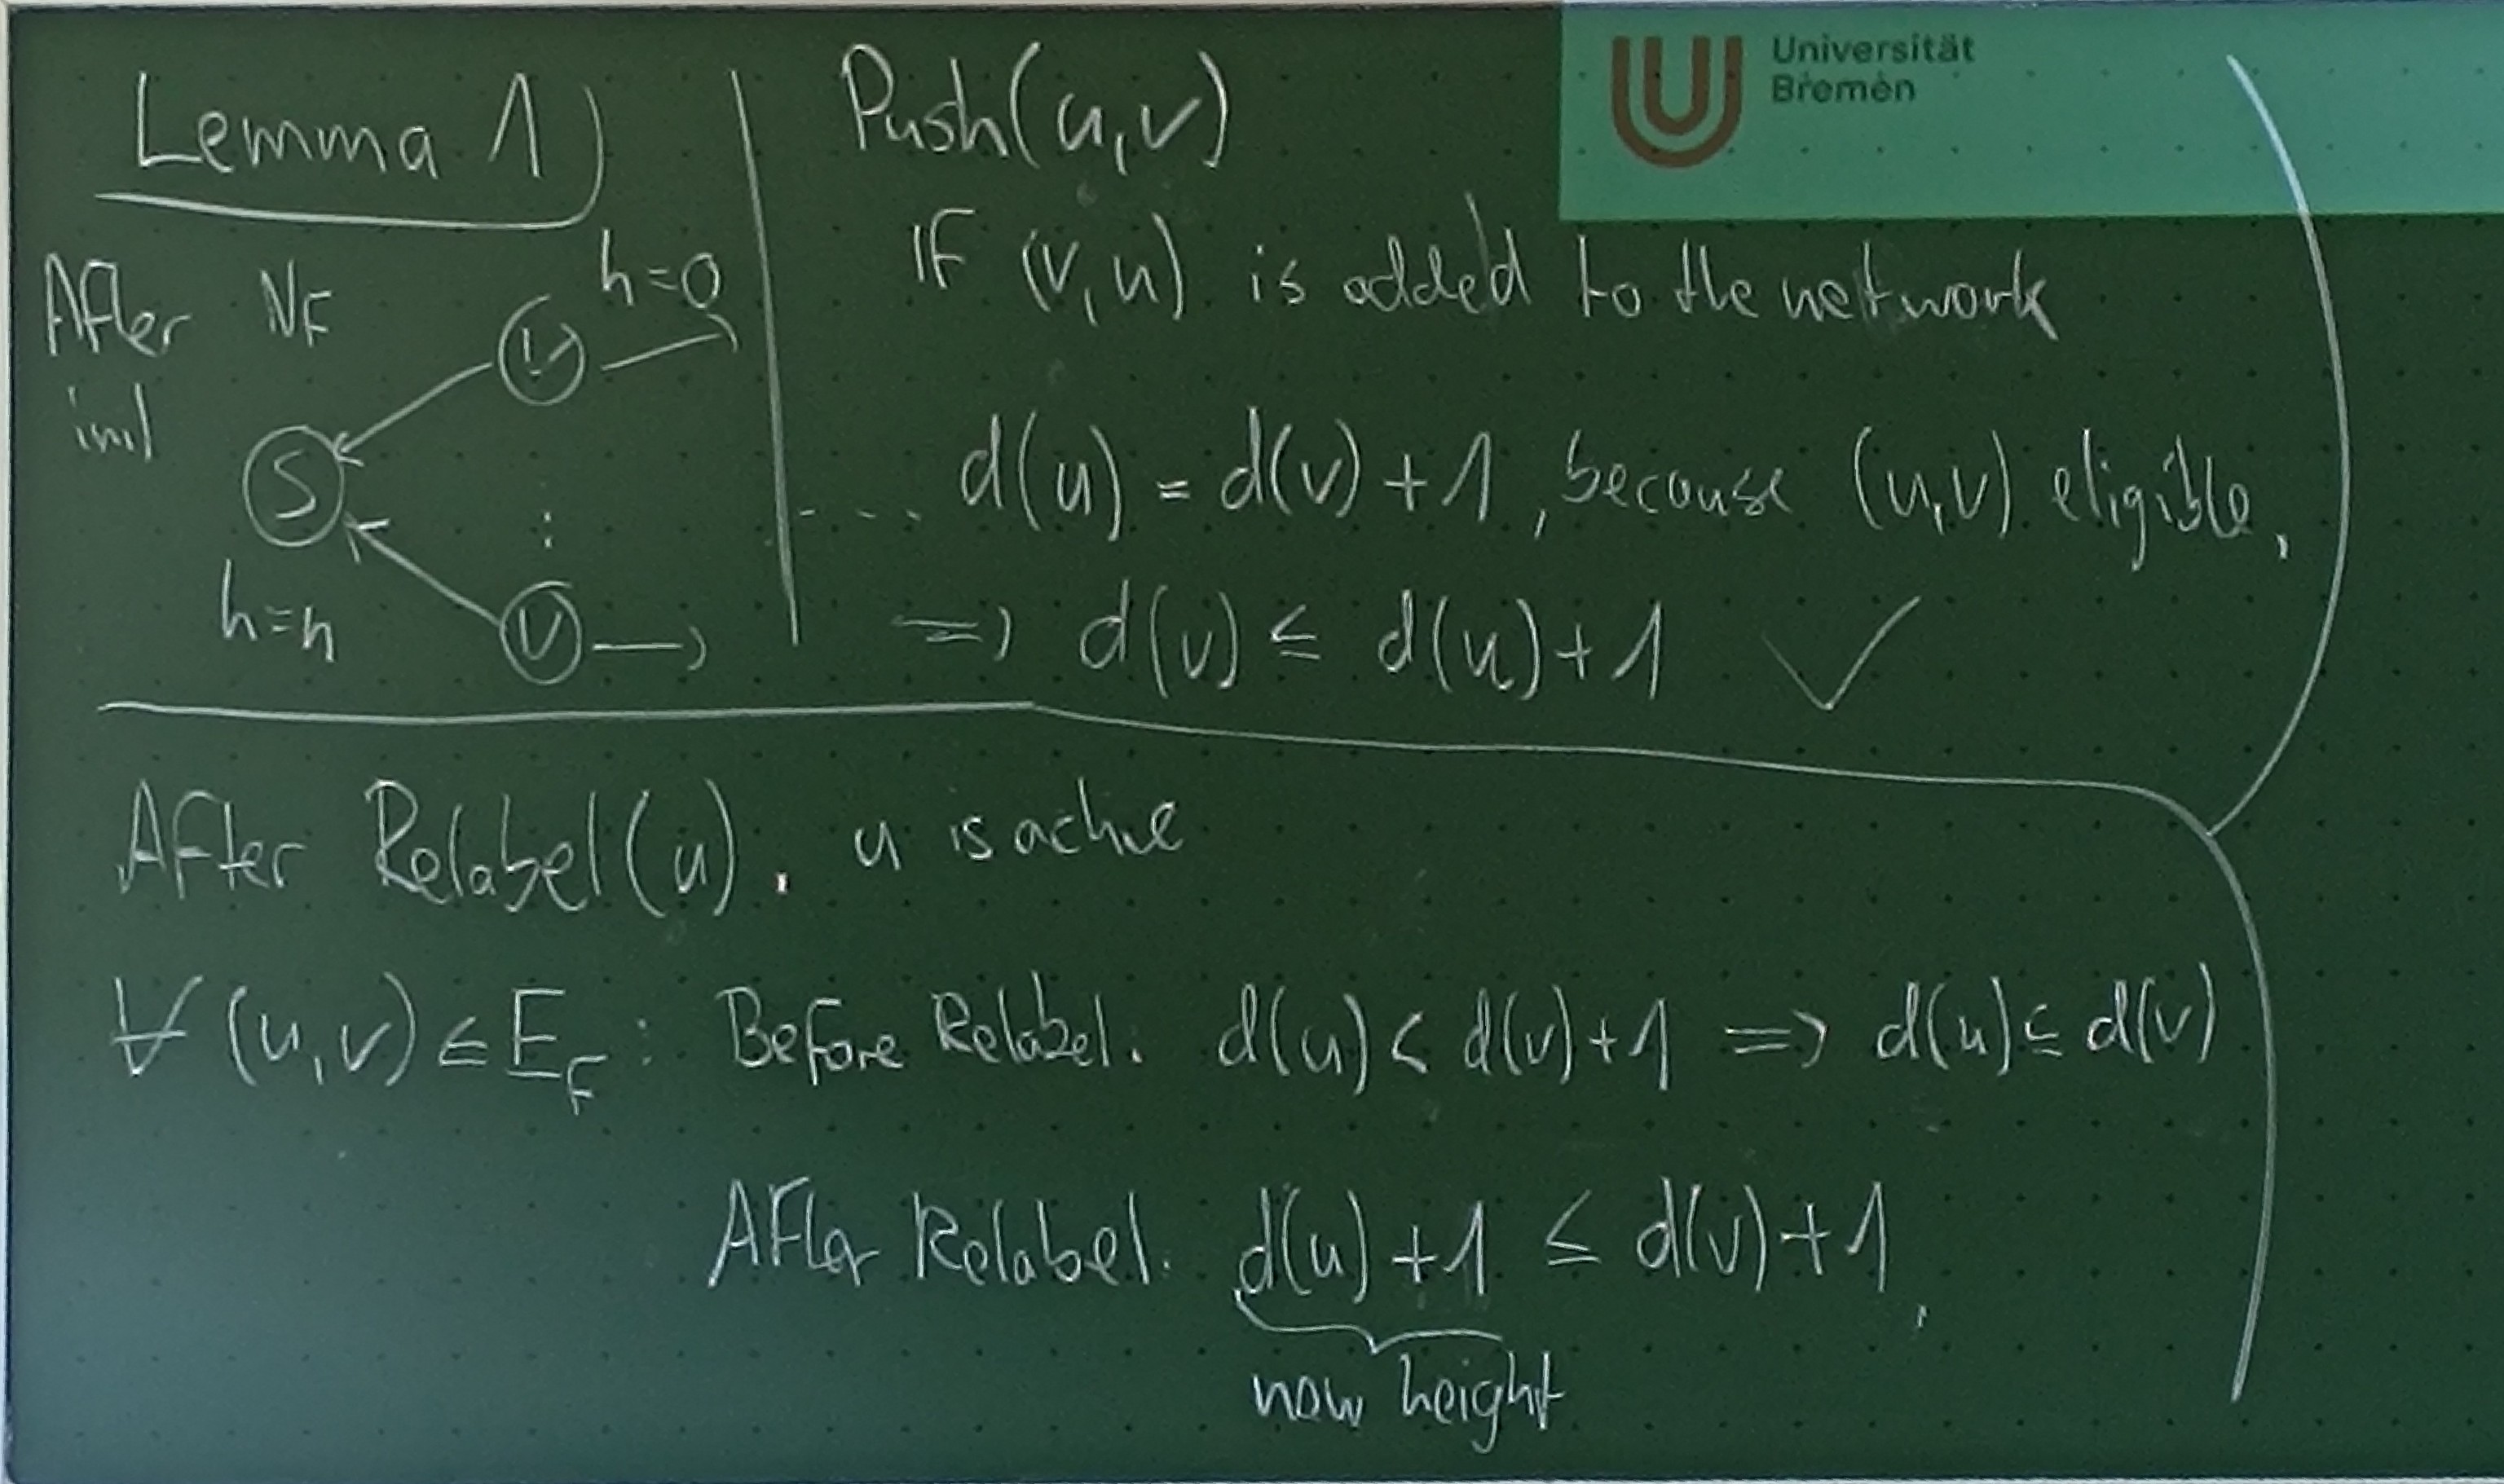 Lemma 1
After N_F
init
h=0
V
S
h=n
:
V
Push(u,v)
Universität
Bremen
IF (v,u) is added to the network
... d(u) = d(v)+1, because (u,v) eligible.
=> d(v) ≤ d(u)+1 ✓
After Relabel(u). u is active
∀ (u,v) ∈ E_F : Before Relabel. d(u) < d(v)+1 => d(u) ≤ d(v)
After Relabel. d(u)+1 ≤ d(v)+1.
new height